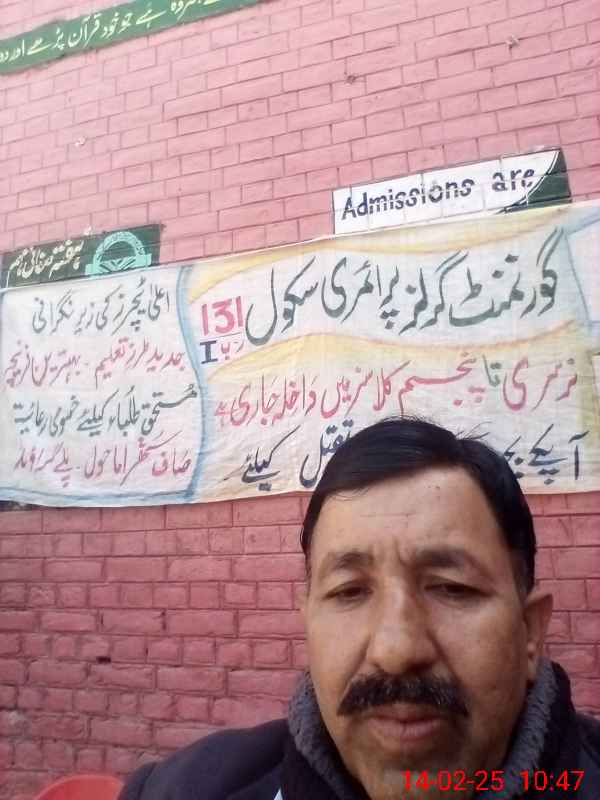 وہ ہے جو خود قرآن پڑھے اور
Admissions are
ہفتہ صفائی مہم
گورنمنٹ گرلز پرائمری سکول 131
نرسری تا پنجم کلاسز میں داخلہ جاری ہے
آپکے کیلئے
اعلیٰ ٹیچرز کی زیر نگرانی
جدید طرز تعلیم - بہترین
مستحق طلباء کیلئے خصوصی رعایت
صاف ستھرا ماحول -
14-02-25 10:47